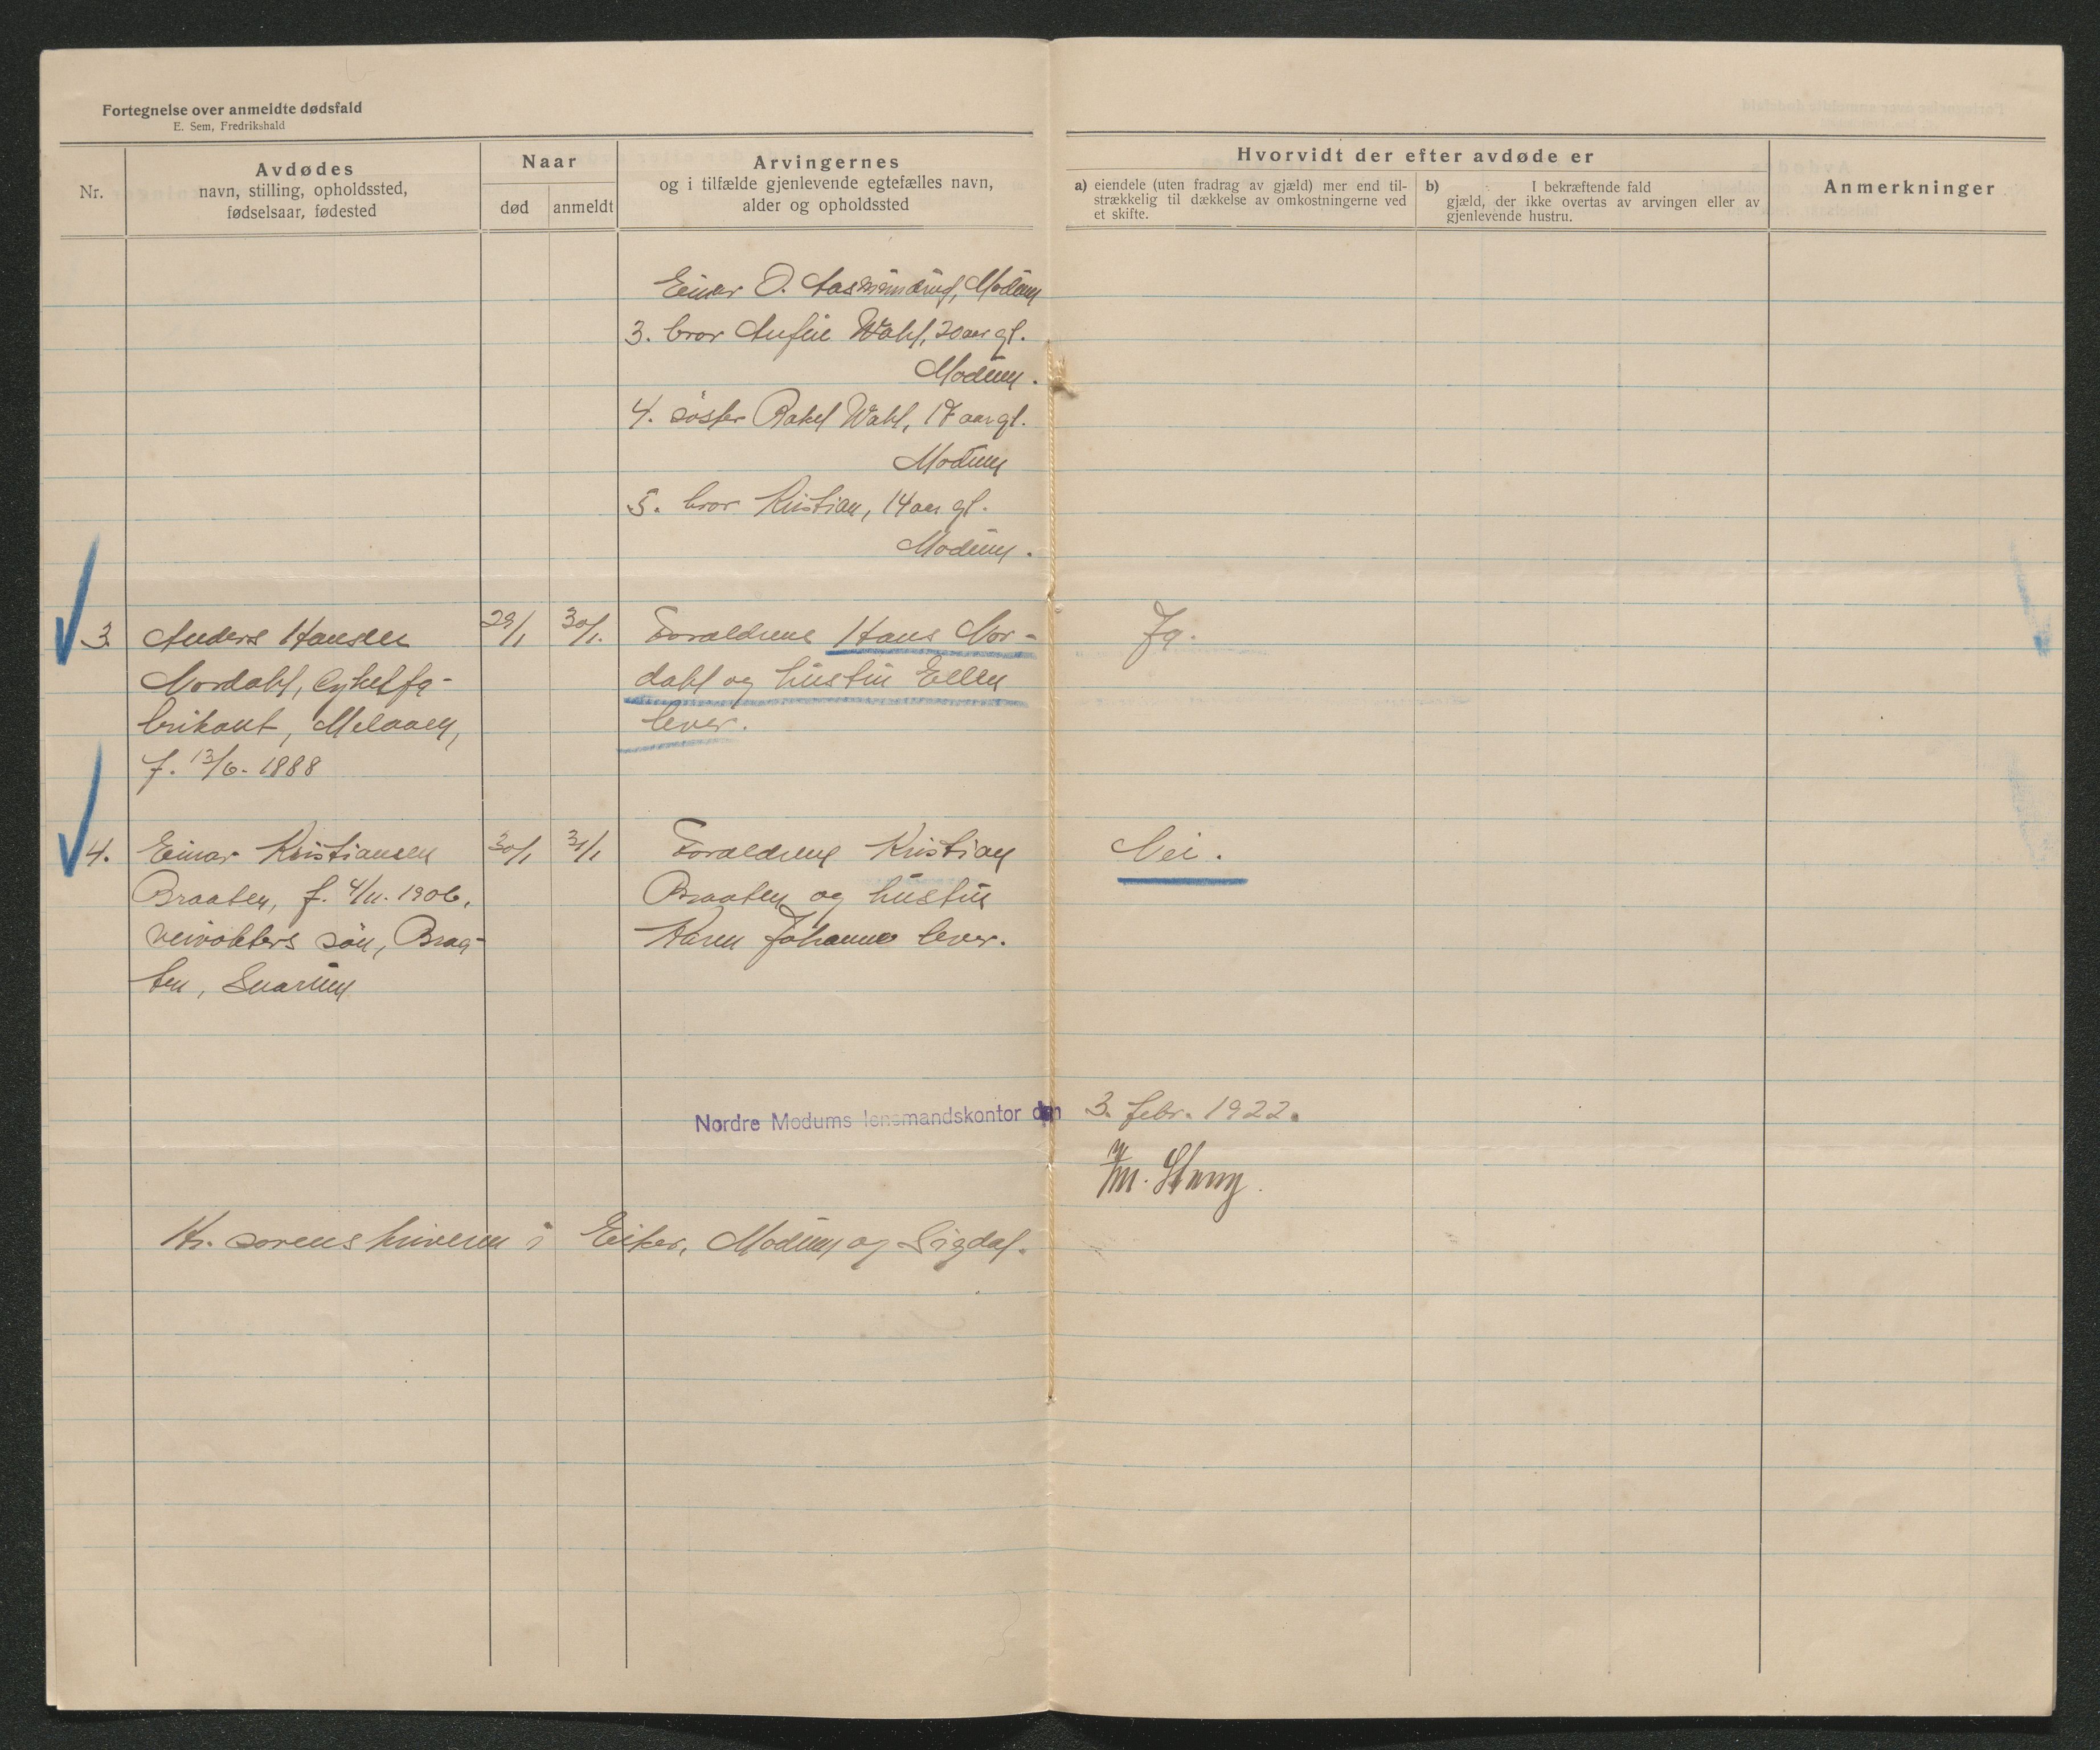 Fortegnelse over anmeldte dødsfald
E. Sem, Fredrikshald
Nr.
Avdødes
navn, stilling, opholdssted,
fødselsaar, fødested
Naar
død
anmeldt
Arvingernes
og i tilfælde gjenlevende egtefælles navn,
alder og opholdssted
Hvorvidt der efter avdøde er
a) eiendele (uten fradrag av gjæld) mer end til-
strækkelig til dækkelse av omkostningerne ved
et skifte.
b) I bekræftende fald
gjæld, der ikke overtas av arvingen eller av
gjenlevende hustru.
Anmerkninger
Einar O. Aasmundrud, Modum
3. bror Anfin Wahl, 20 aar gl.
Modum.
4. søster Rakel Wahl, 17 aar gl.
Modum
5. bror Kristian, 14 aar gl.
Modum.
3. Anders Hansen 29/1 30/1. Forældrene Hans Nor- Ja.
Nordahl, Cykelfa- dahl og hustru Ellen
brikant, Melaaen, lever.
f. 13/6-1888
4. Einar Kristiansen 30/1 31/1 Forældrene Kristian Nei.
Braaten, f. 4/11.1906, Braaten og hustru
veivokters søn, Braa- Karen Johanne lever.
ten, Snarum
Nordre Modums lensmandskontor den 3. febr. 1922.
M. Strøm.
Hr. sorenskriveren i Eiker, Modum og Sigdal.